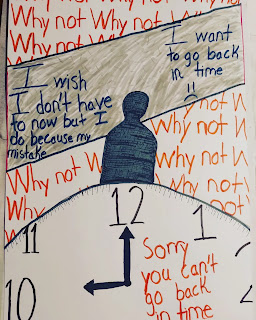 Why not Why not Why not
Why not Why not
Why not
I want
to go back
in time
I wish
I don't have
to now but I
do because my
mistake
Why not W
Why not
Why not W
Why not
Why not
Why not
Why not
12
11
1
10
2
Sorry
you can't
go back
in time